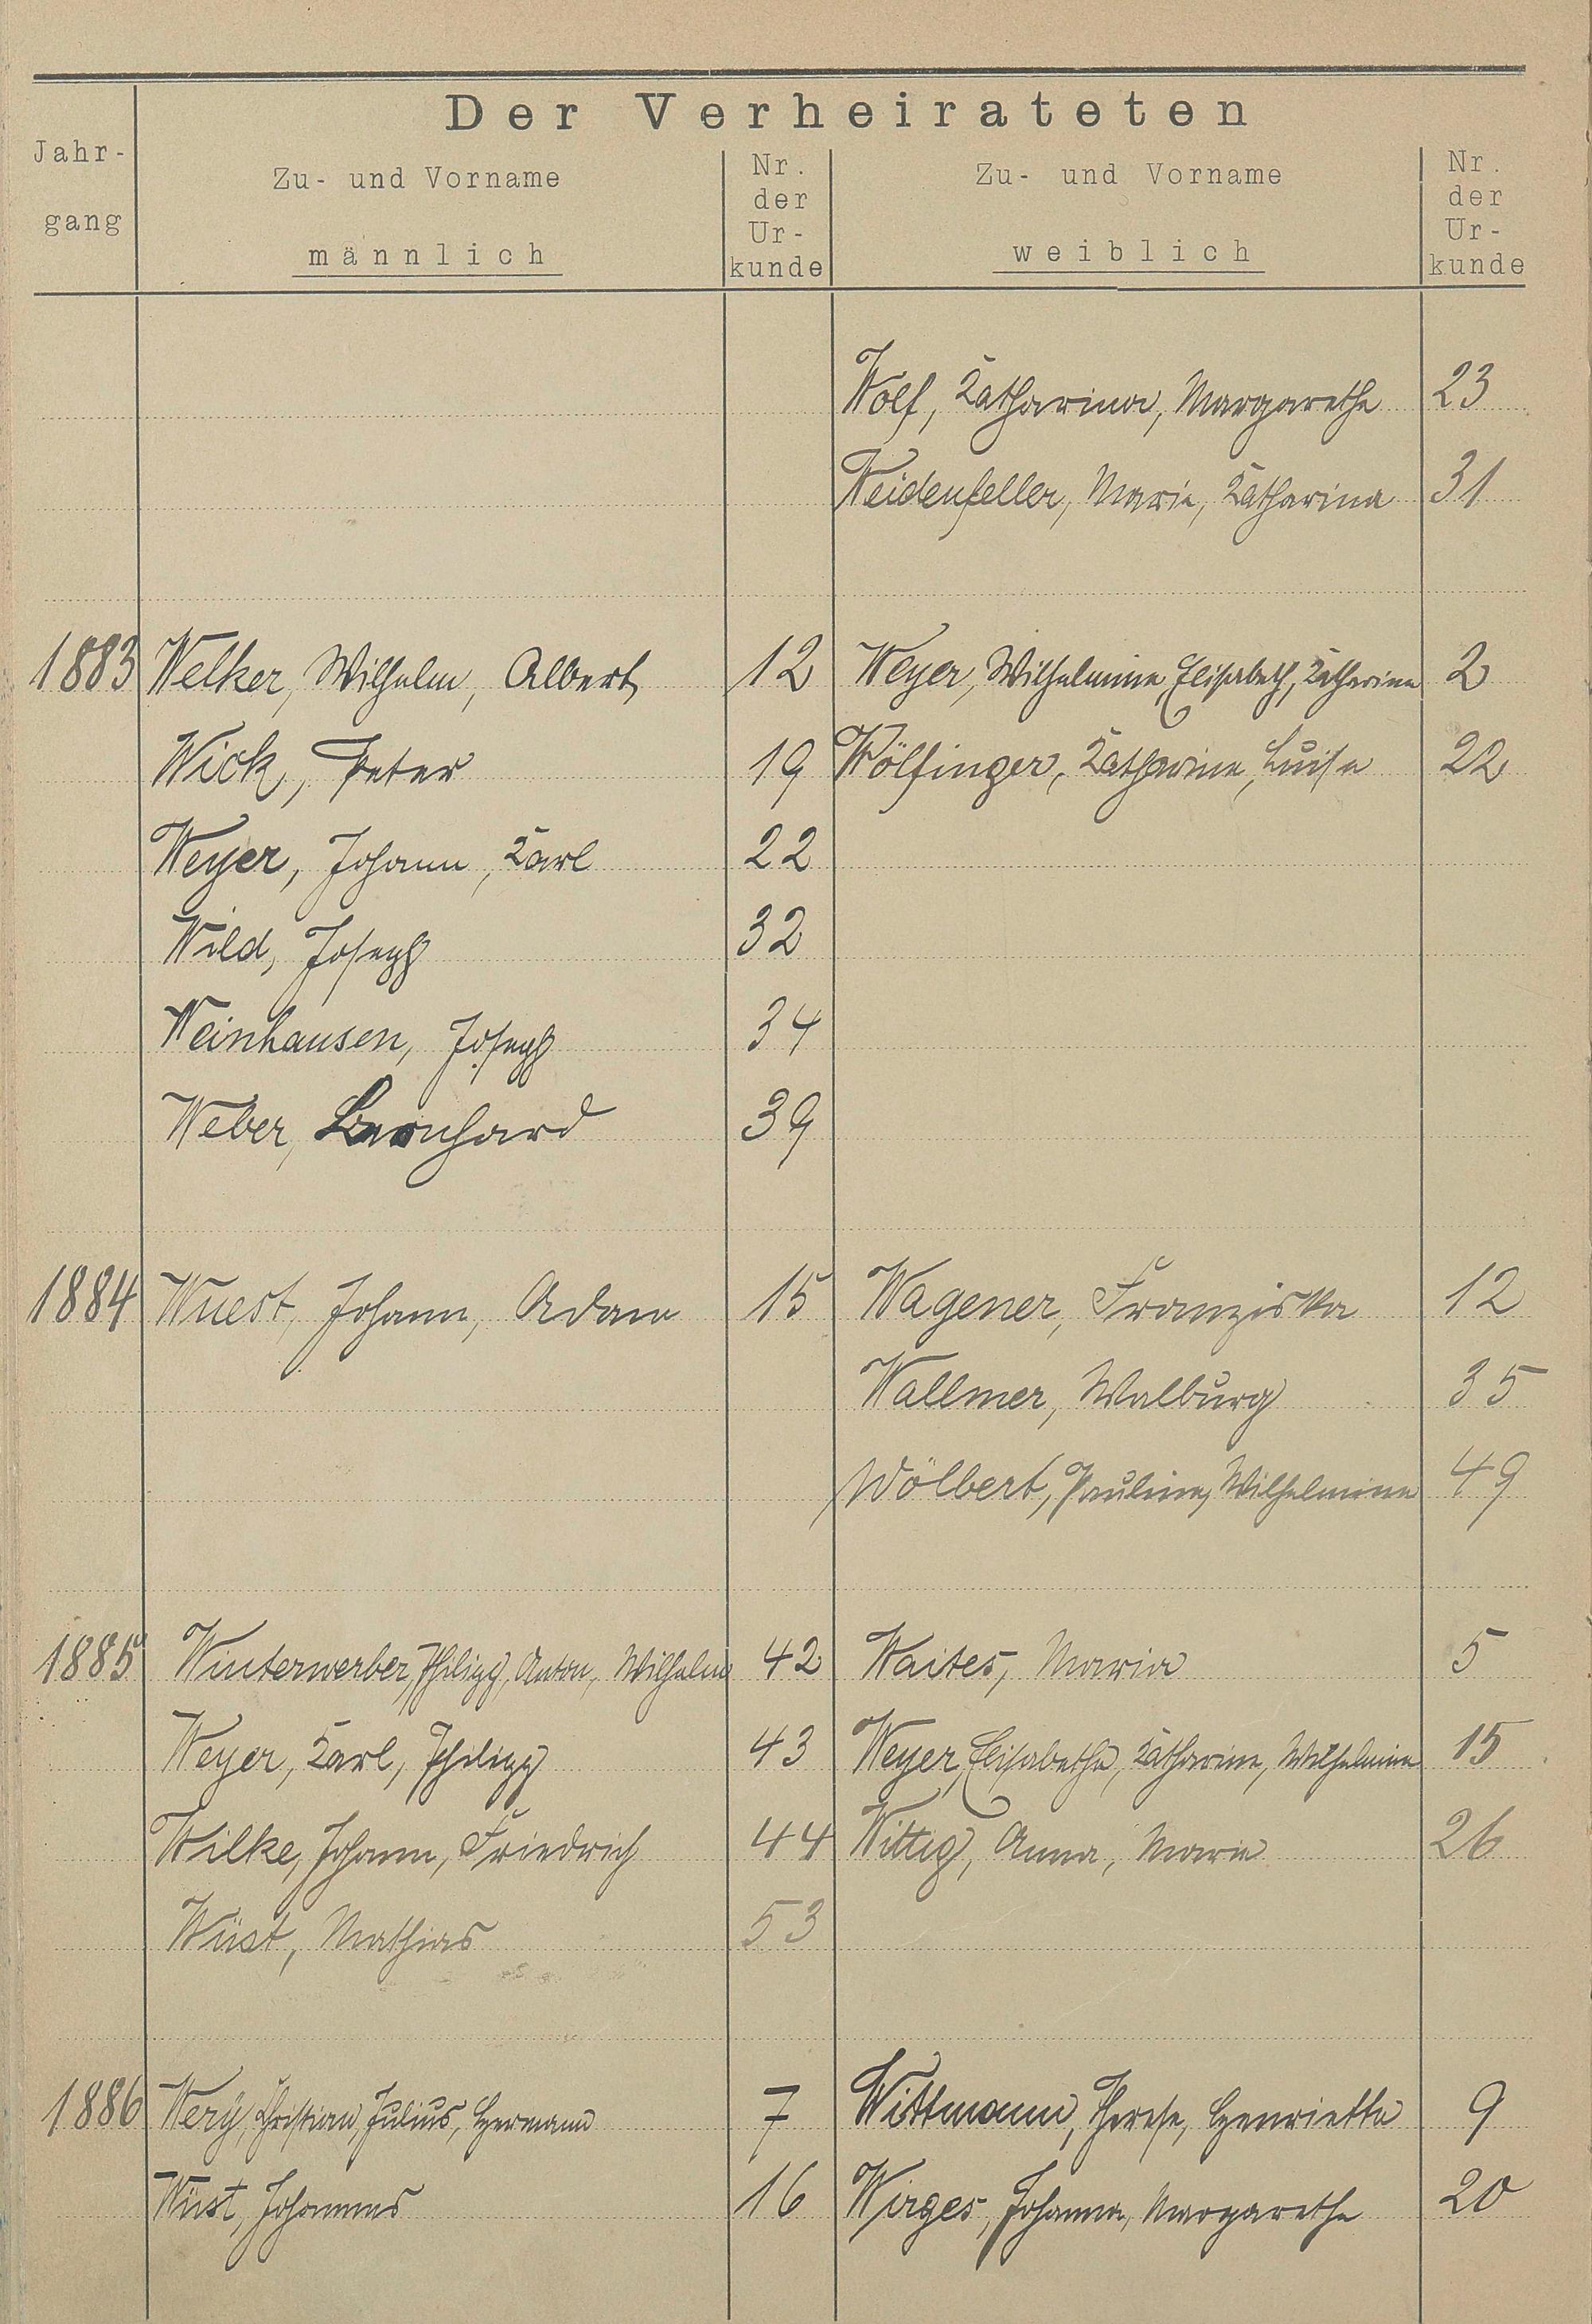 Der Verheirateten
Jahr-
gang
Zu- und Vorname
männlich
Nr.
der
Ur-
kunde
Zu- und Vorname
weiblich
Nr.
der
Ur-
kunde
Wolf, Katharina, Margarethe 23
Weidenfeller, Marie, Katharina 31
1883 Welker, Wilhelm, Albert 12 Weyer, Wilhelmine, Elisabeth, Katharine 2
Wick, Peter 19 Wölfinger, Katharine, Luise 22
Weyer, Johann, Karl 22
Wild, Joseph 32
Weinhausen, Joseph 34
Weber, Bernhard 39
1884 Wuest, Johann, Adam 15 Wagener, Franziska 12
Wallmer, Walburg 35
Wölbert, Pauline, Wilhelmine 49
1885 Winterwerber, Philipp, Anton, Wilhelm 42 Waites, Maria 5
Weyer, Karl, Philipp 43 Weyer, Elisabethe, Katharine, Wilhelmine 15
Wilke, Johann, Friedrich 44 Wittig, Anna, Marie 26
Wüst, Mathias 53
1886 Wery, Christian, Julius, Hermann 7 Wittmann, Therese, Henriette 9
Wüst, Johannes 16 Wirges, Johanna, Margarethe 20